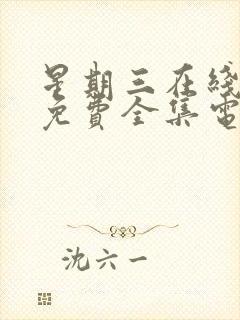 星期三在线
免費全集電
沈六一